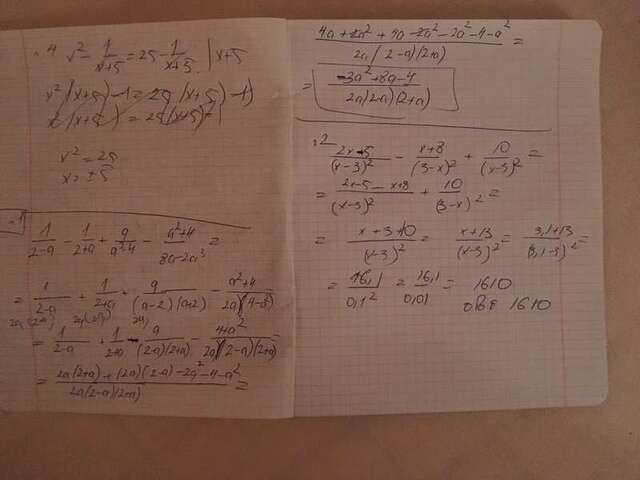 №4 x² - 1/(x+5) = 25 - 1/(x+5) |x+5
x²(x+5) - 1 = 25(x+5) - 1
x²(x+5) = 25(x+5)
x² = 25
x = ±5
№1
1/(2-a) - 1/(2+a) + a/(a²-4) - (a²+4)/(8a-2a³) =
= 1/(2-a) + 1/(2+a) + a/((a-2)(a+2)) - (a²+4)/(2a(4-a²))
= 1/(2-a) + 1/(2+a) - a/((2-a)(2+a)) - (4+a²)/(2a(2-a)(2+a)) =
= (2a(2+a) + (2a)(2-a) - 2a² - 4 - a²)/(2a(2-a)(2+a)) =
(4a + 2a² + 4a - 2a² - 2a² - 4 - a²)/(2a(2-a)(2+a)) =
= (-3a² + 8a - 4)/(2a(2-a)(2+a))
№2
(2x-5)/(x-3)² - (x+8)/(3-x)² + 10/(x-3)² =
= (2x-5-x+8)/(x-3)² + 10/(3-x)² =
= (x+3+10)/(x-3)² = (x+13)/(x-3)² = (3,1+13)/(3,1-3)² =
= 16,1/0,1² = 16,1/0,01 = 1610
отв: 1610